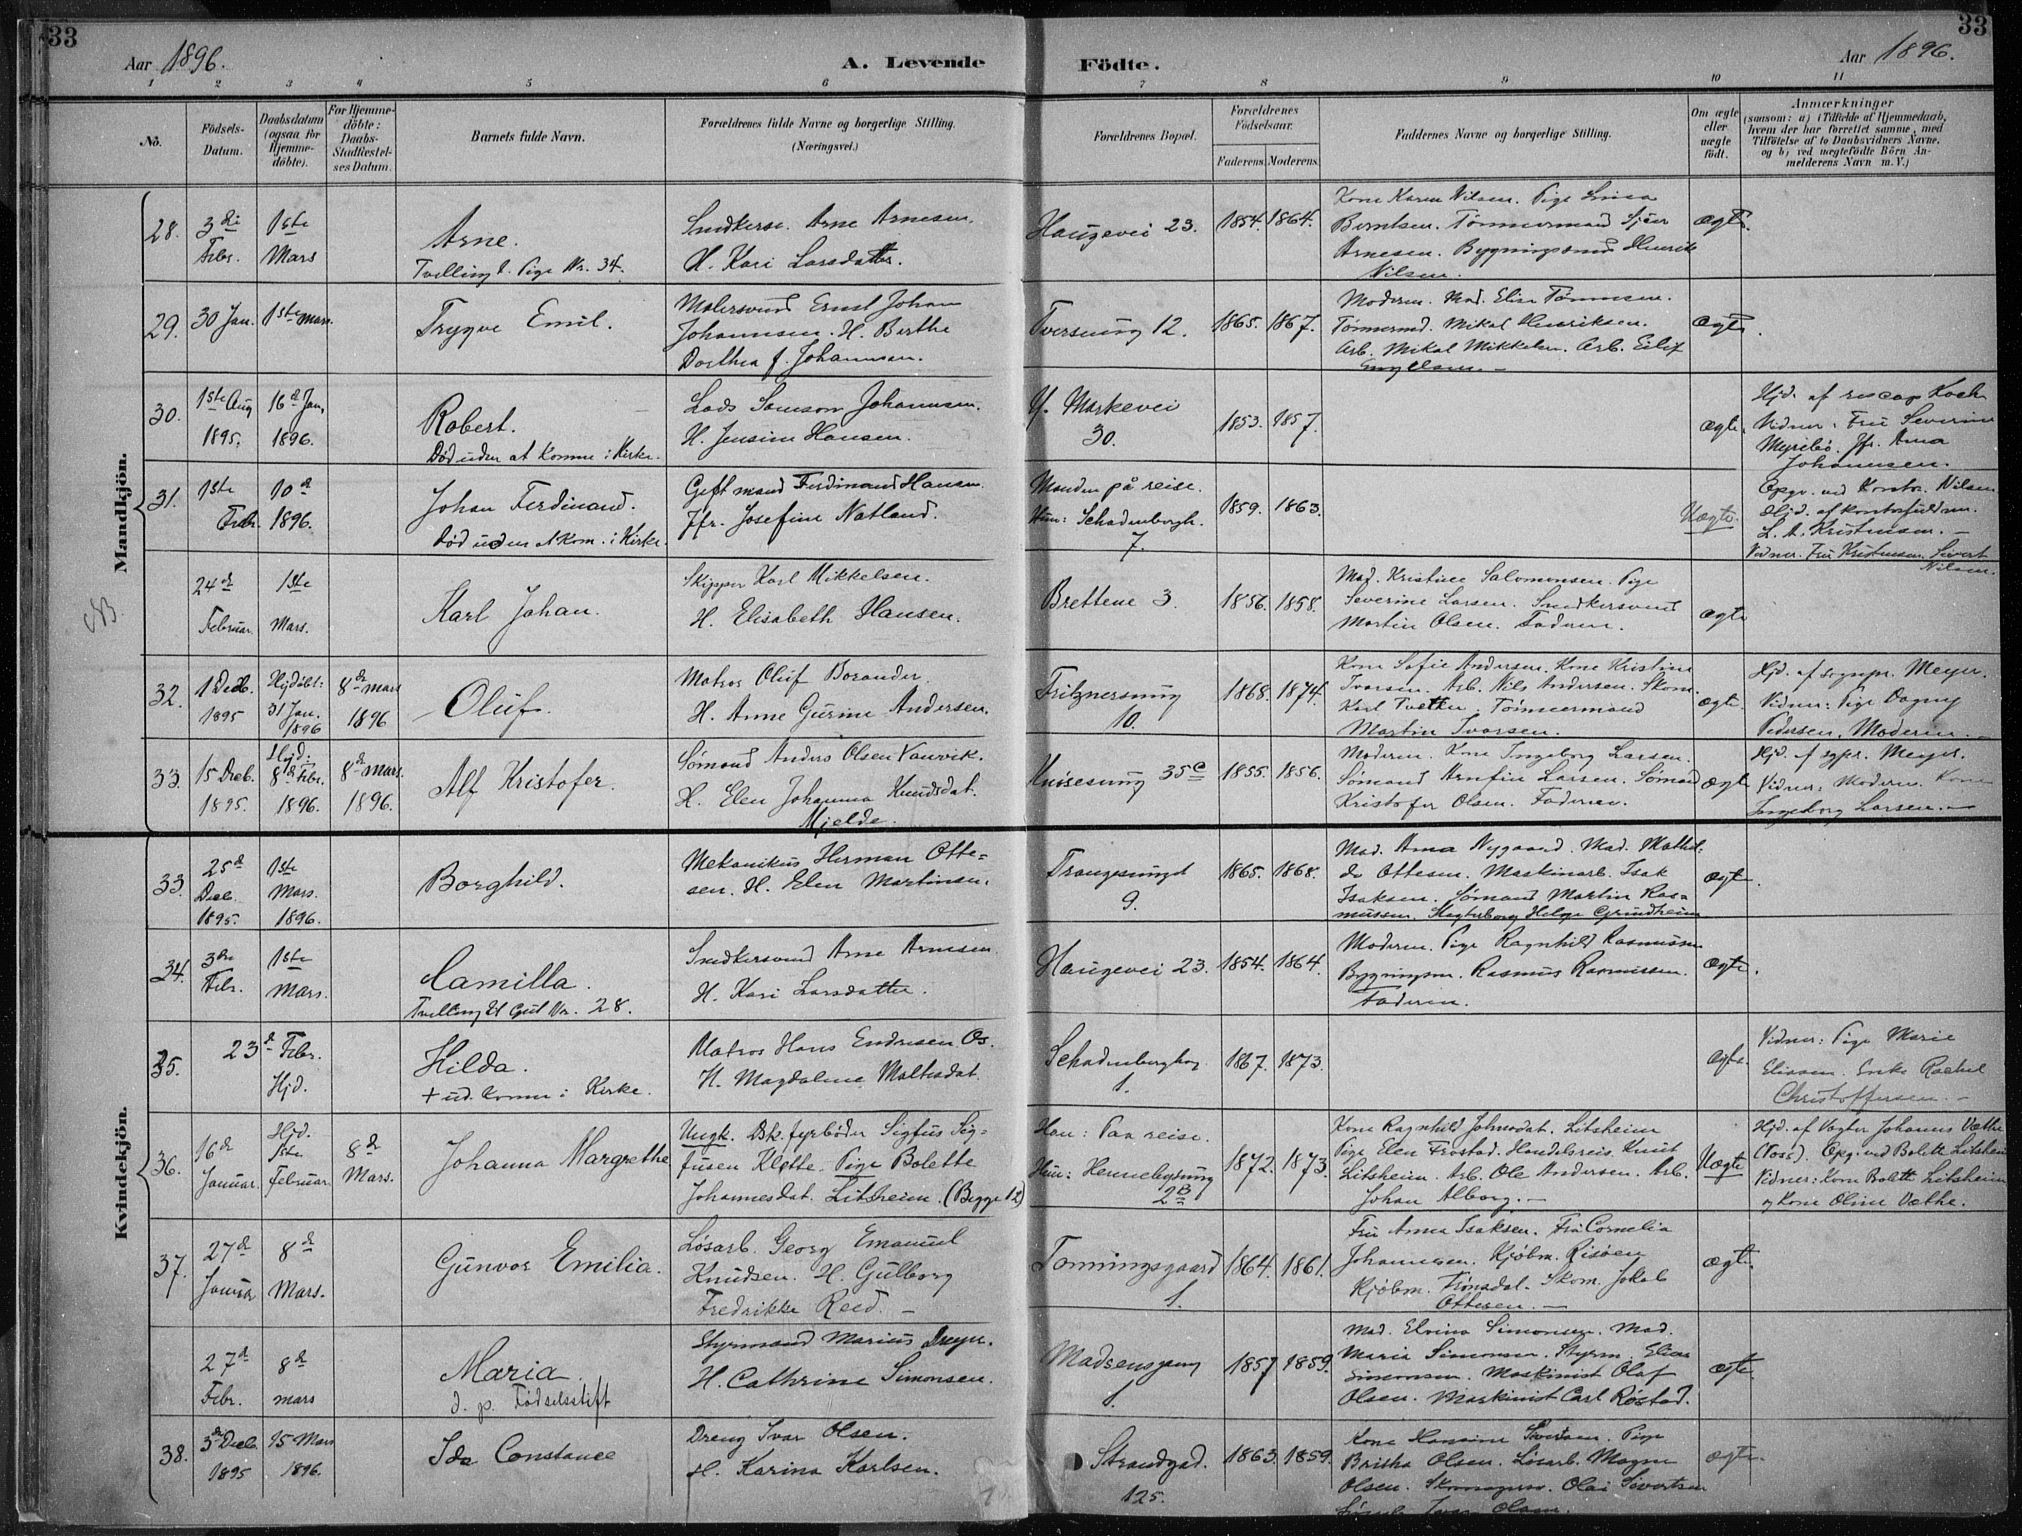 33
33
Aar 1896.
A. Levende Födte.
Aar 1896.
1 2 3 4 5 6 7 8 9 10 11
No.
Födsels-Datum.
Daabsdatum (ogsaa for Hjemme-döbte).
For Hjemme-döbte: Daabs-Stadfæstel-ses Datum.
Barnets fulde Navn.
Forældrenes fulde Navne og borgerlige Stilling. (Næringsvei.)
Forældrenes Bopæl.
Forældrenes Födselsaar.
Faderens. Moderens.
Faddernes Navne og borgerlige Stilling.
Om ægte eller uægte födt.
Anmærkninger
(saasom: a) i Tilfælde af Hjemmedaab, hvem der har forrettet samme, med Tilföielse af to Daabsvidners Navne, og b) ved uægtefödte Börn An-melderens Navn m. V.)
Mandkjön.
28. 3di Febr. 1ste Mars
Arne.
Tvilling t. Pige Nr. 34.
Snedkersv. Arne Arnesen.
H. Kari Larsdatter.
Haugevei 23. 1854. 1864.
Kone Karen Nilsen. Pige Lina
Berntsen. Tømmermand Sjur
Arnesen. Bygningssnd Henrik
Nilsen.
ægte.
29. 30 Jan. 1ste Mars.
Trygve Emil.
Malersvend Ernst Johan
Johannsen. H. Berthe
Dorthea f. Johannsen.
Tversmug 12. 1865. 1867.
Moderen. Mad. Elise Tønnesen.
Tømmermd. Mikal Henriksen.
Arb. Mikal Mikkelsen. Arb. Eilif
ægte.
30. 1ste Aug 1895. 16d Jan. 1896.
Robert.
Død uden at komme i Kirke.
Lods Samson Johannesen.
H. Jensine Hansen.
Y. Markevei
30.
1853. 1857.
ægte.
Hjd. af res cap Koch
Vidner: Fru Severine
Myrebø. Jfr. Anna
Johannesen.
31. 1ste Febr. 10d 1896.
Johan Ferdinand.
Død uden at kom. i Kirke.
Gift mand Ferdinand Hansen.
Jfr. Josefine Natland.
Manden på reise.
Hun: Schadenbergh.
7.
1859. 1863.
Uægte.
Opgv. ved Kontr. Nilsen
Hjd. af kontorfuldm.
L. A. Kristensen.
Vidner. Fru Kristensen. Sivert
Nilsen.
24d Februar. 1ste Mars.
Karl Johan.
Skipper Karl Mikkelsen.
H. Elisabeth Hansen.
Brettene 3. 1856. 1858.
Mad. Kristine Salomonsen. Pige
Severine Larsen. Snedkersvend
Martin Olsen. Faderen.
ægte
32. 1 Decb. 1895 Hjdøbt: 31 Jan. 1896 8de mars 1896
Oluf.
Matros Oluf Borander.
H. Anne Gurine Andersen.
Fritznersmug
10.
1868. 1874.
Kone Sofie Andersen. Kone Kristine
Ivarsen. Arb. Nils Andersen. Skom.
Karl Tvetten. Tømmermand
Martin Ivarsen.
ægte.
Hjd. af sognepr. Meyer.
Vidner: Pige Dagny
Pedersen. Moderen.
33. 15 Decb. 1895. Hjd: 8de Febr. 1896. 8de Mars. 1896.
Alf Kristofer.
Sømand Anders Olsen Vanvik.
H. Elen Johanna Knudsdat.
Mjelde.
Knøsesmug 35C 1855. 1856.
Moderen. Kone Ingeborg Larsen.
Sømand Arnfin Larsen. Sømand
Kristofer Olsen. Faderen.
ægte
Hjd. af sgpr. Meyer.
Vidner: Moderen. Kone
Ingeborg Larsen.
Kvindekjön.
33. 25d Decb. 1895. 1ste Mars. 1896.
Borghild.
Mekanikus Herman Otte=
sen. H. Elen Martinsen.
Trangesmuget
9.
1865. 1868.
Mad. Anna Nygaard. Mad. Mathil-
de Ottesen. Maskinarb. Isak
Isaksen. Sømand Martin Ras=
mussen. Helge Grindheim
ægte.
34. 3die Febr. 1ste Mars.
Camilla.
Tvilling til Gut Nr. 28.
Snedkersvend Arne Arnesen
H. Kari Larsdatter.
Haugevei 23. 1854. 1864.
Moderen. Pige Ragnhild Rasmussen
Bygningssn. Rasmus Rasmussen.
Faderen.
ægte.
35. 23d Febr. Hjd.
Hilda.
+ ud. komme i Kirke.
Matros Hans Endresen Os.
H. Magdalene Maltesdat.
Schadenberghg
1.
1867. 1873.
ægte
Vidner: Pige Marie
Eliassen. Enke Rachel
Christoffersen.
36. 16d Januar. Hjd. 1ste Februar. 8d Mars.
Johanna Margrethe
Ungk. Dsk. fyrbøder Sigfus Sig=
fusen Kløtte. Pige Bolette
Johannesdat. Litsheim. (Begge 12)
Han: Paa reise.
Hun: Hennebysmug
2B
1872. 1873.
Kone Ragnhild Johnsdat. Litsheim
Pige Elen Frøstad. Handelsreis. Knut
Litsheim. Arb. Ole Andersen. Arb.
Johan Alborg.
Uægte
Hjd. af Vagter Johannes Vethe
Opg. ved Bolette Litsheim
Vidner: Kone Bolette Litsheim
og Kone Oline Vethe.
37. 27d Januar 8d Mars.
Gunvor Emilia.
Løsarb. Georg Emanuel
Knudsen. H. Gulborg
Fredrikke Reed.
Tonningsgaard
1.
1864. 1861.
Fru Anna Isaksen. Fru Cornelia
Johannesen. Kjøbm. Risøen
Kjøbm. Frønsdal. Skom. Jakob
Ottesen.
ægte.
27d Febr. 8d mars
Maria.
d. p. Fødselsstift
Styrmand Marius Dreyer.
H. Cathrine Simonsen.
Madsensgang
1.
1857 1859.
Mad. Elvina Simonsen. Mad.
Maria Simonsen. Styrm. Elias
Simonsen. Maskinist Olaf
Olsen. Maskinist Carl Røstad.
ægte
38. 3de Decb. 1895 15 Mars 1896.
Ida Constance
Dreng Ivar Olsen.
H. Karina Karlsen.
Strandgad.
125.
1863. 1859.
Kone Hansine Sivertsen. Pige
Britha Olsen. Løsarb. Magne
Olsen. Olai Sivertsen
Ivar Olsen.
ægte.